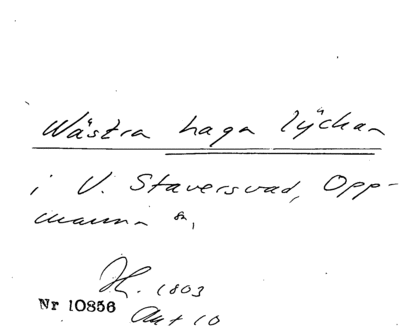 Wästra haga lÿckan
i V. Staversvad, Opp-
manna sn,
H. 1803
Nr 10856
Akt 10